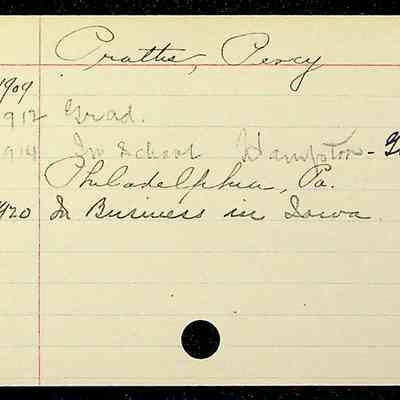 Prattis, Percy
1909
1912 Grad.
1914 In School Hampton - G
Philadelphia, Pa.
1920 In Business in Iowa.